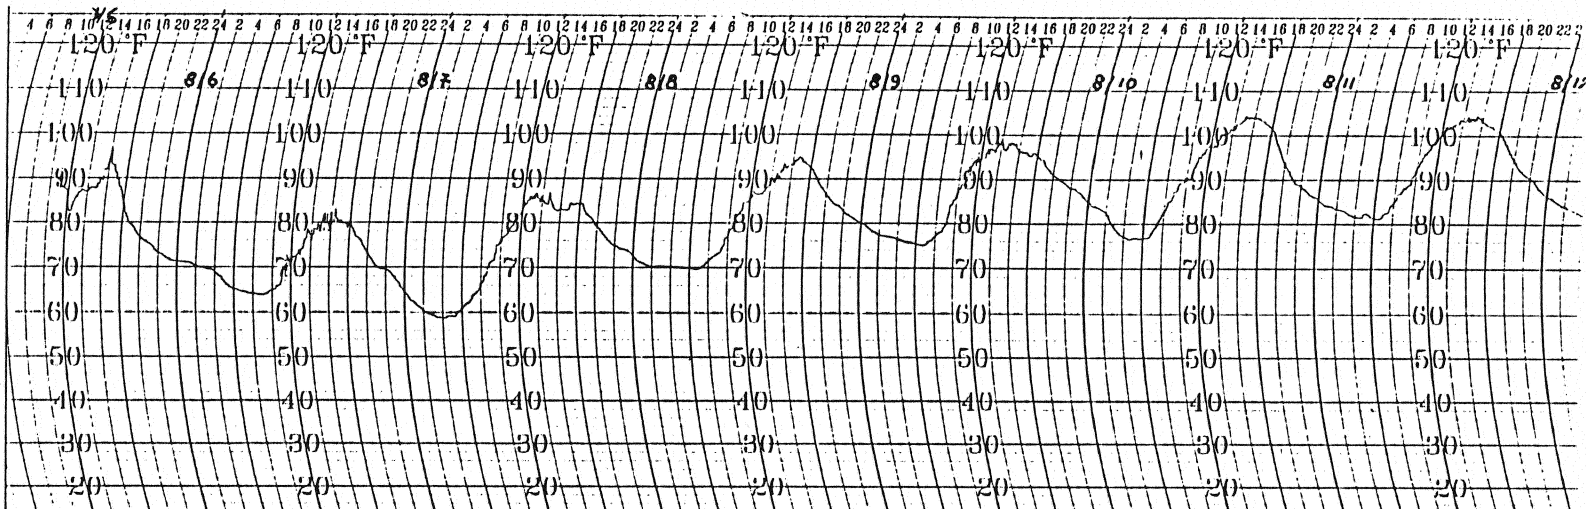 4 6 8 10 14 16 18 20 22 24 2 4 6 8 10 12 14 16 18 20 22 24 2 4 6 8 10 12 14 16 18 20 22 24 2 4 6 8 10 12 14 16 18 20 22 24 2 4 6 8 10 12 14 16 18 20 22 24 2 4 6 8 10 12 14 16 18 20 22 24 2 4 6 8 10 12 14 16 18 20 22
120°F 120°F 120°F 120°F 120°F 120°F 120°F
8/6 8/7 8/8 8/9 8/10 8/11
110 110 110 110 110 110 110
100 100 100 100 100 100 100
90 90 90 90 90 90 90
80 80 80 80 80 80 80
70 70 70 70 70 70 70
60 60 60 60 60 60 60
50 50 50 50 50 50 50
40 40 40 40 40 40 40
30 30 30 30 30 30 30
20 20 20 20 20 20 20